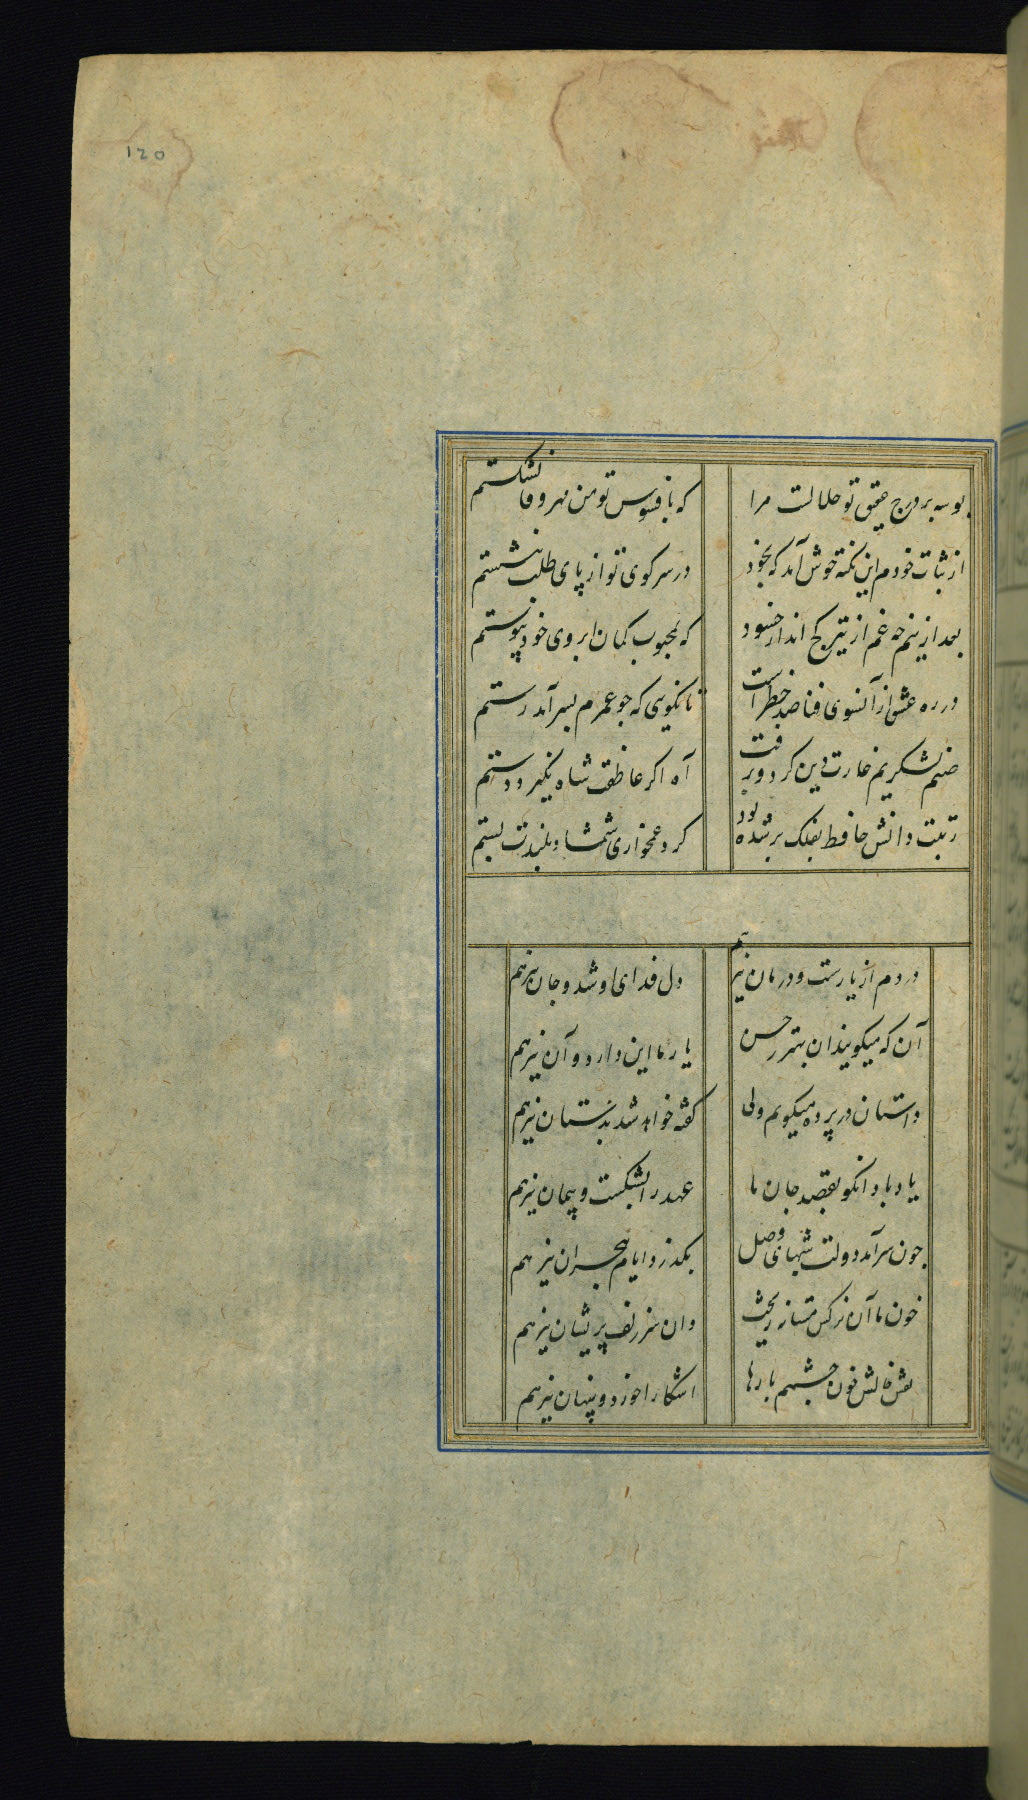 120
بوسه بر درج عقیق تو حلالست مرا
که بافسوس تو من مهر وفا نشکستم
از ثبات خودم این نکته خوش آمد که بخود
در سر کوی تو از پای طلب ننشستم
بعد ازینم چه غم از تیر کج انداز حسود
که بمحبوب کمان ابروی خود پیوستم
در ره عشق از آنسوی فنا صد خطر است
تا نکویی که جو عمرم بسر آمد رستم
صنم لشکریم غارت دین کرد و برفت
آه اکر عاطفت شاه نکیرد دستم
رتبت دانش حافظ بفلک بر شده بود
کرد غمخواری شمشاد بلندت پستم
دردم از یارست و درمان نیز هم
دل فدای او شد و جان نیز هم
آن که میکویند آن بهتر ز حسن
یار ما این دارد و آن نیز هم
داستان در پرده میکویم ولی
کفته خواهد شد بدستان نیز هم
یاد باد انکو بقصد جان ما
عهد را بشکست و پیمان نیز هم
چون سر آمد دولت شبهای وصل
بکذرد ایام هجران نیز هم
خون ما آن نرکس مستانه ریخت
وان سر زلف پریشان نیز هم
نقش خالش خون چشمم بارها
اشکارا خورد و پنهان نیز هم